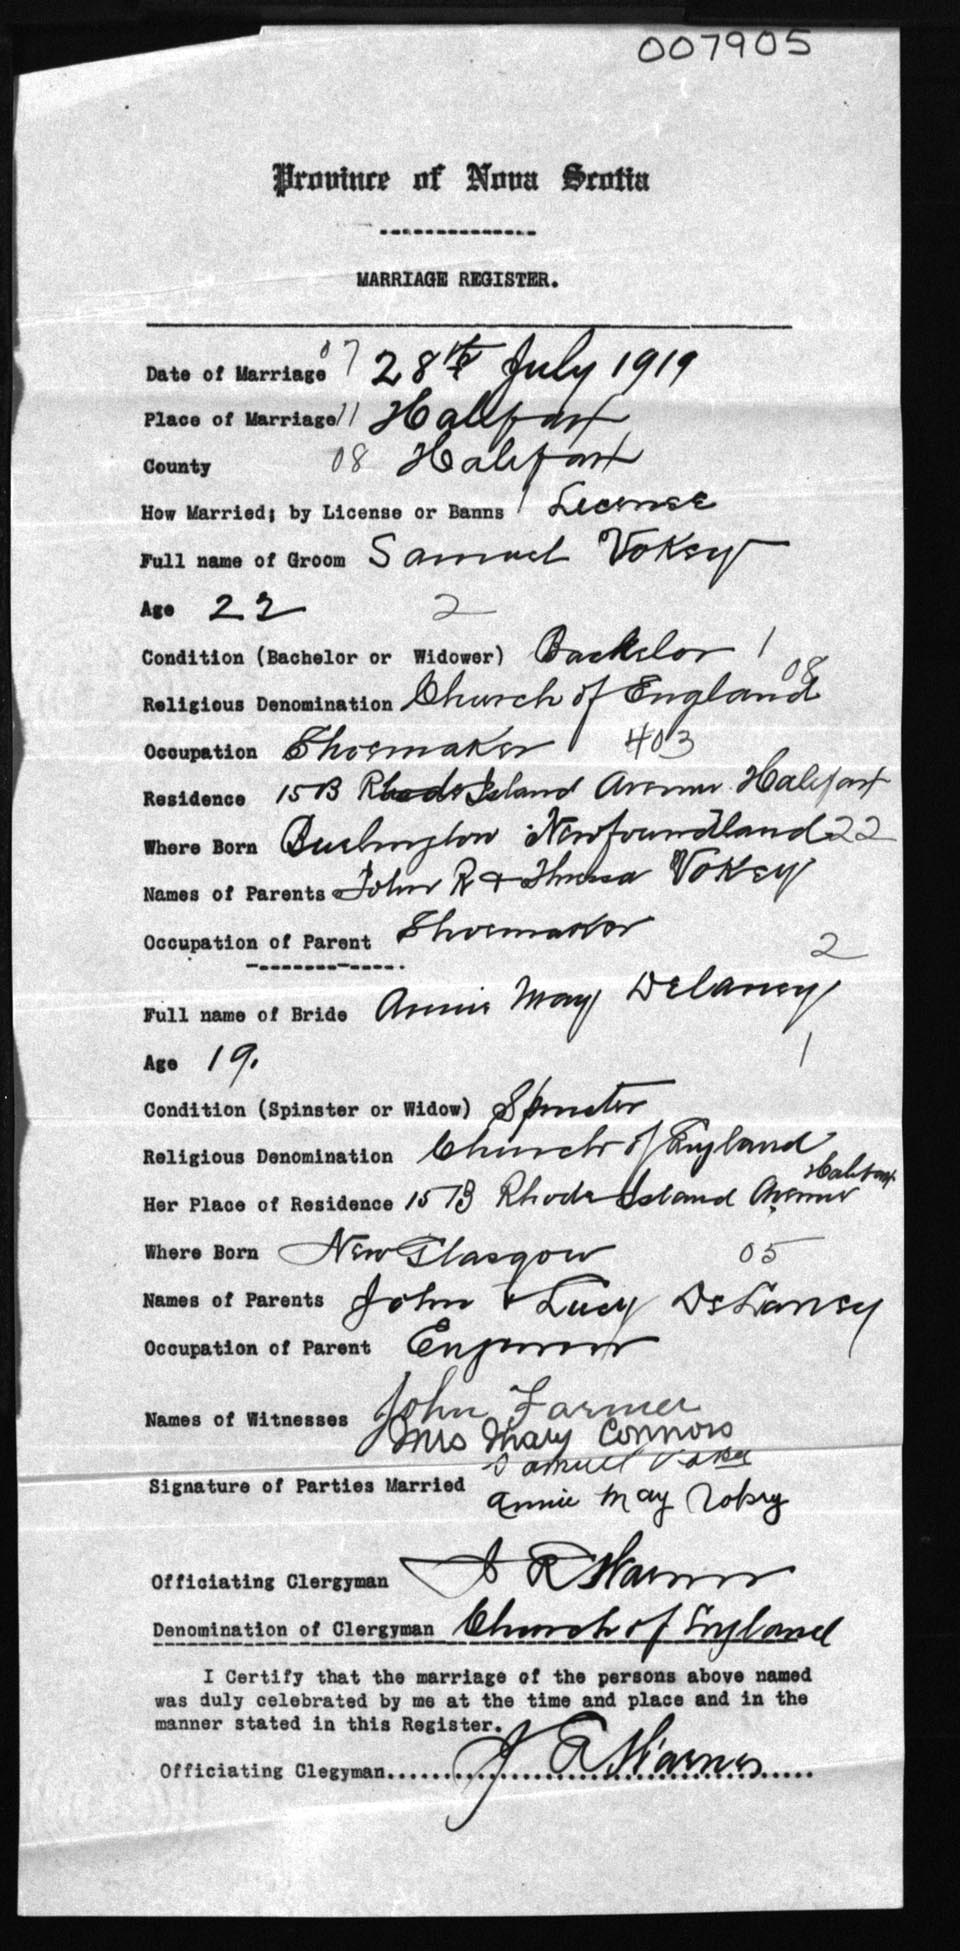 007905
Province of Nova Scotia
MARRIAGE REGISTER.
Date of Marriage 07 28th July 1919
Place of Marriage 11 Halifax
County 08 Halifax
How Married; by License or Banns 1 License
Full name of Groom Samuel Vokey
Age 22 2
Condition (Bachelor or Widower) Bachelor 1
Religious Denomination Church of England 08
Occupation Shoemaker 403
Residence 15 B Rhode Island Avenue Halifax
Where Born Burlington Newfoundland 22
Names of Parents John R & Vokey
Occupation of Parent Shoemaker
2
Full name of Bride Annie May Delaney
Age 19. 1
Condition (Spinster or Widow) Spinster
Religious Denomination Church of England
Her Place of Residence 15 B Rhode Island Avenue Halifax
Where Born New Glasgow 05
Names of Parents John & Lucy DeLaney
Occupation of Parent Engineer
Names of Witnesses John Farmer
Mrs Mary Connors
Signature of Parties Married Samuel Vokey
Annie May Vokey
Officiating Clergyman
Denomination of Clergyman Church of England
I Certify that the marriage of the persons above named
was duly celebrated by me at the time and place and in the
manner stated in this Register.
Officiating Clegyman....................................